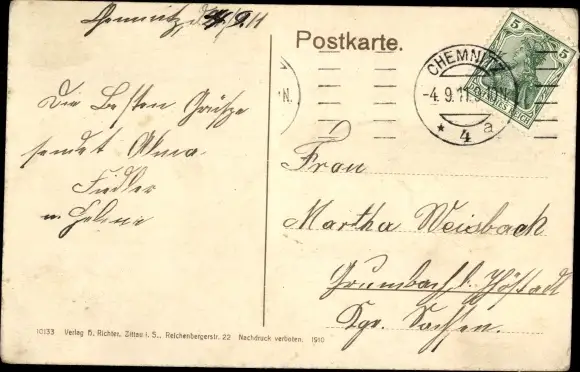 Chemnitz, d. 4/9.11
Postkarte.
5 5
CHEMNITZ
-4.9.11.9-10N.
* 4 a
DEUTSCHES REICH
N.
Die Besten Grüße
sendet Alma
Fiedler
u. Helene
Frau
Martha Weisbach
Grumbach b. Jöhstadt
Kgr. Sachsen.
10133 Verlag H. Richter, Zittau i. S., Reichenbergerstr. 22 Nachdruck verboten. 1910